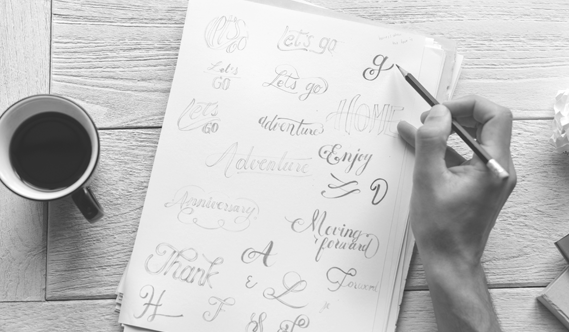 Let's GO
Let's go
g
Let's GO
Let's go
Let's GO
HOME
adventure
Adventure
Enjoy
D
Anniversary
Moving forward
Thank
A
&
L
Forward
H
F
S